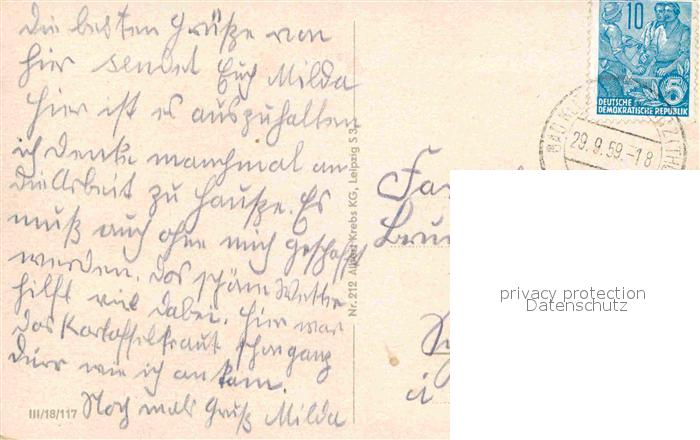 Die besten Grüße von
hier sendet Euch Milda
hier ist es auszuhalten
ich denke manchmal an
die Arbeit zu Hauße. Es
muß auch ohne mich geschafft
werden. Das schöne Wetter
hilft viel dabei. Hier war
das Kartoffelkraut schon ganz
dürr wie ich an kam.
Noch mals Gruß Milda
III/18/117
Nr. 212 Alfred Krebs KG, Leipzig S 3
10
5
DEUTSCHE
DEMOKRATISCHE REPUBLIK
29.9.59.-18
Fa
privacy protection
Datenschutz